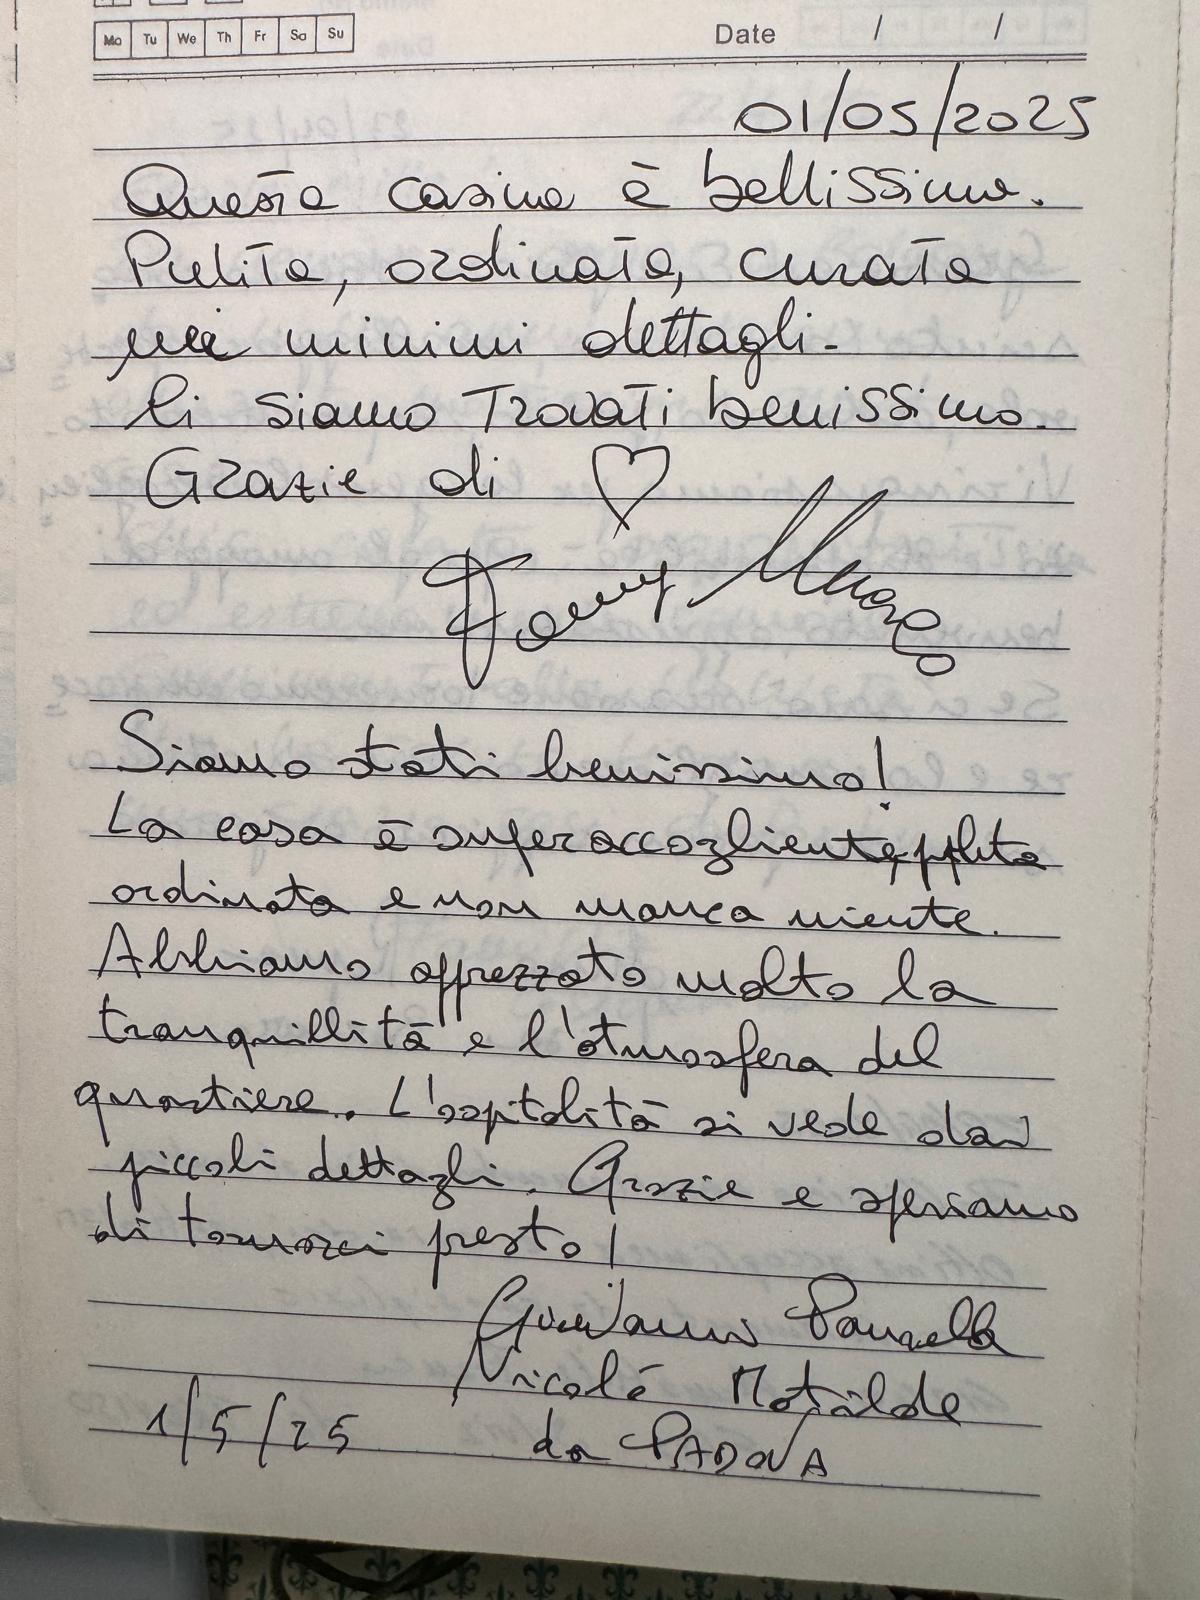 Mo Tu We Th Fr Sa Su
Date / /
01/05/2025
Questa casina è bellissima.
Pulita, ordinata, curata
nei minimi dettagli.
Ci siamo trovati benissimo.
Grazie di ♡
Siamo stati benissimo!
La casa è superaccogliente, pulita
ordinata e non manca niente.
Abbiamo apprezzato molto la
tranquillità e l'atmosfera del
quartiere. L'ospitalità si vede dai
piccoli dettagli. Grazie e speriamo
di tornarci presto!
Nicolé Matilde
1/5/25 da PADOVA